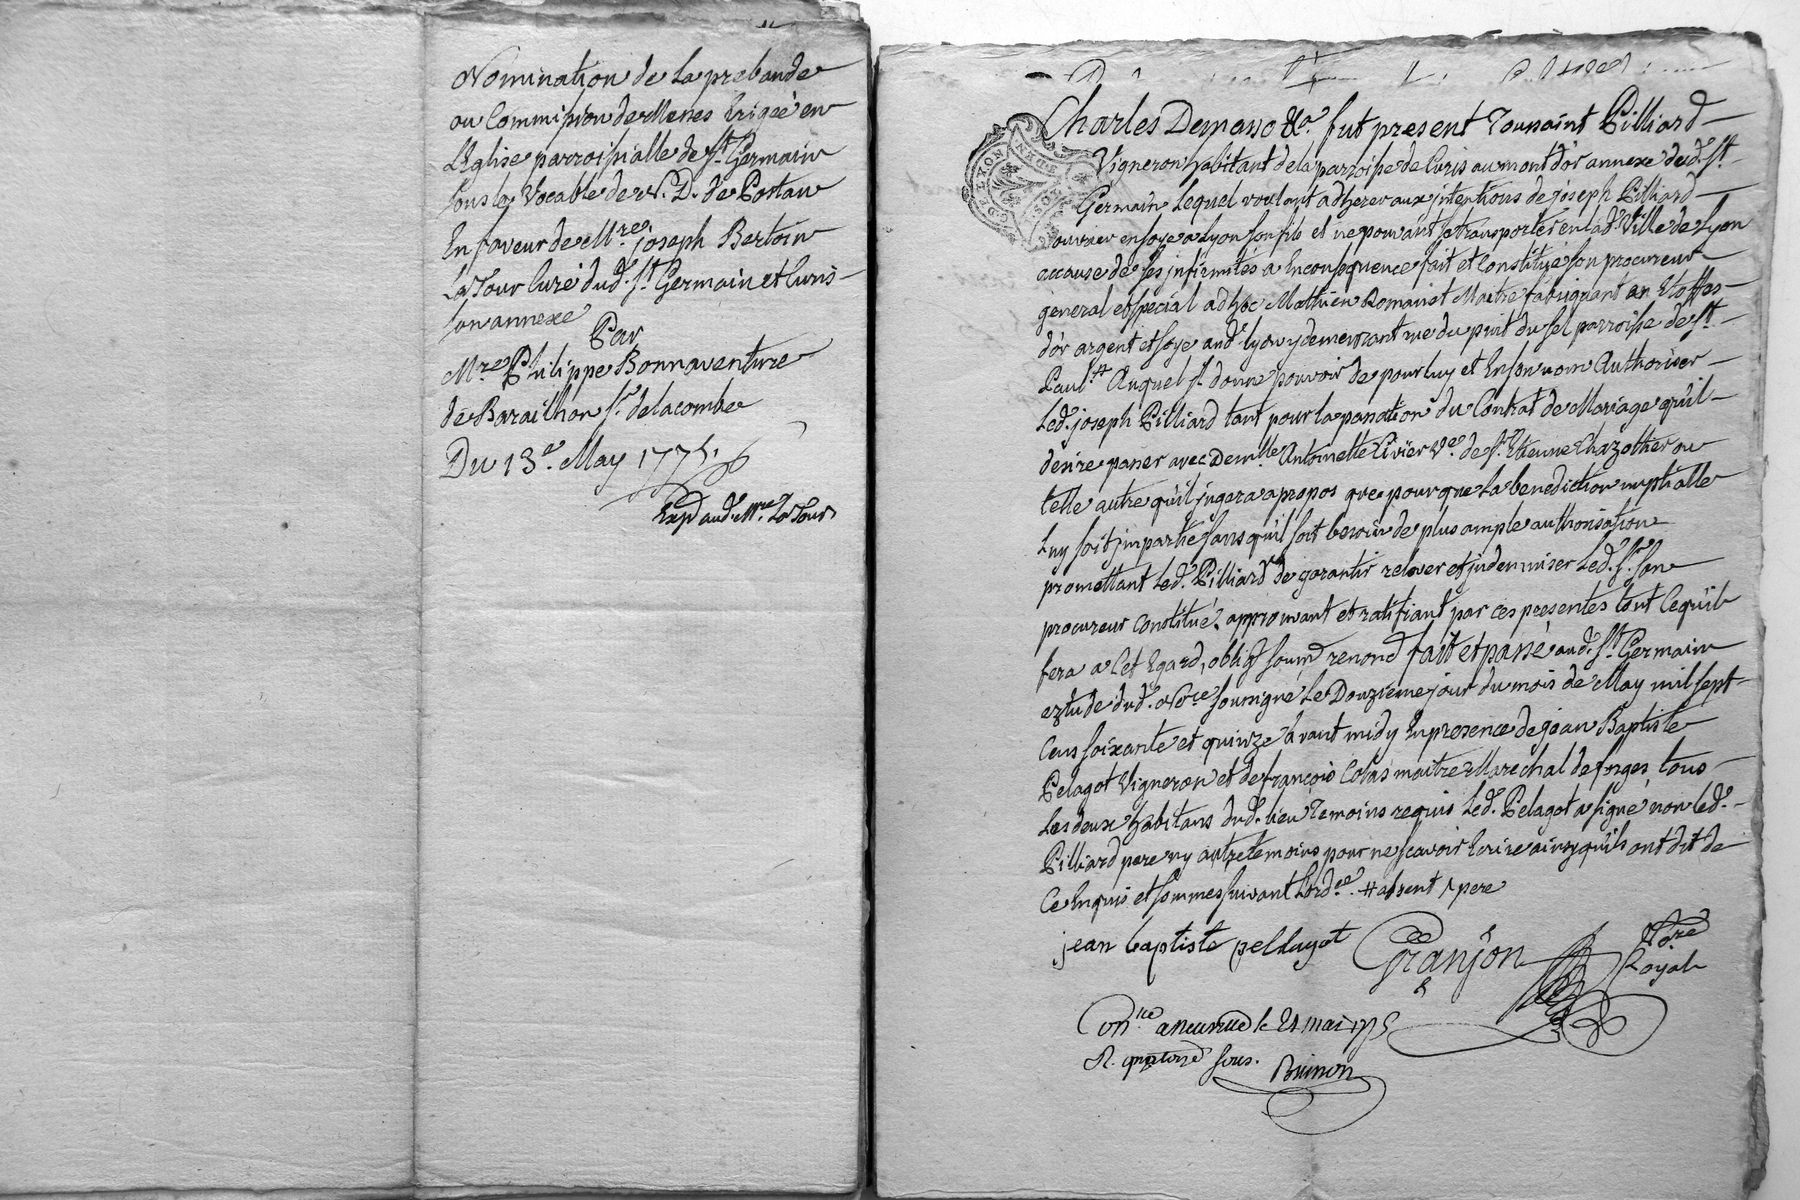 Nomination de la prebande
ou Commission de Messes Erigée en
L'Eglise parroissialle de St. Germain
sous la Vocable de N. D. de
En faveur de Mre. joseph Bertoin
La Tour Curé dud. St. Germain et Curis
son annexe
Par
Mre. Philippe Bonnaventure
de Barailhon Sr. delacombe
Du 13e. May 1775.
Exp. aud. Mre. La Tour
Charles Demasso &a. fut present Toussaint Pilliard
Vigneron habitant de la parroisse de Curis au mont d'or annexe dud. St.
Germain Lequel voulant adherer aux intentions de joseph Pilliard
ouvrier en soye a Lyon son fils et ne pouvant se transporter en lad. Ville de Lyon
accause de ses infirmités a Enconsequence fait et Constitué son procureur
general et special ad hoc Mathieu Romain et Maitre fabriquant en Etoffes
d'or argent et soye aud. Lyon y demeurant rue du puit du sel parroisse de St.
Paul # Auquel il donne pouvoir de pour luy et En son nom Authoriser
Led. joseph Pilliard tant pour la passation du Contrat de Mariage qu'il
desire passer avec Demlle Antoinette Rivier Ve. de Sr. Etienne Chazother ou
telle autre qu'il jugera apropos que pour que La benediction nuptialle
Luy soit jmpartie sans qu'il soit besoin de plus ample authorisation
promettant Led. Pilliard de garantir relever et jndemniser Led. Sr. son
procureur Constitué, approuvant et ratifiant par ces presentes tout Ce qu'il
fera a Cet Egard, oblig. soum. renond. fait et passé aud. St. Germain
Eztude dud. Nore soussigné Le Douzieme jour du mois de May mil sept
Cens soixante et quinze avant midy En presence de jean Baptiste
Pelagot Vigneron et de françois Colas maitre Marechal de forges, tous
Les deux habitans dud. lieu Temoins requis Led. Pelagot a signé non led.
Pilliard pere ny autre temoins pour ne scavoir Ecrire ainsy qu'ils ont dit de
Ce Enquis et sommes suivant Lord.ce. # absent / pere
jean baptiste pellagot Granjon Nore
Royal
Con.lle a neuville le 21 mai 1775
R. quatorze sous.
Brimon